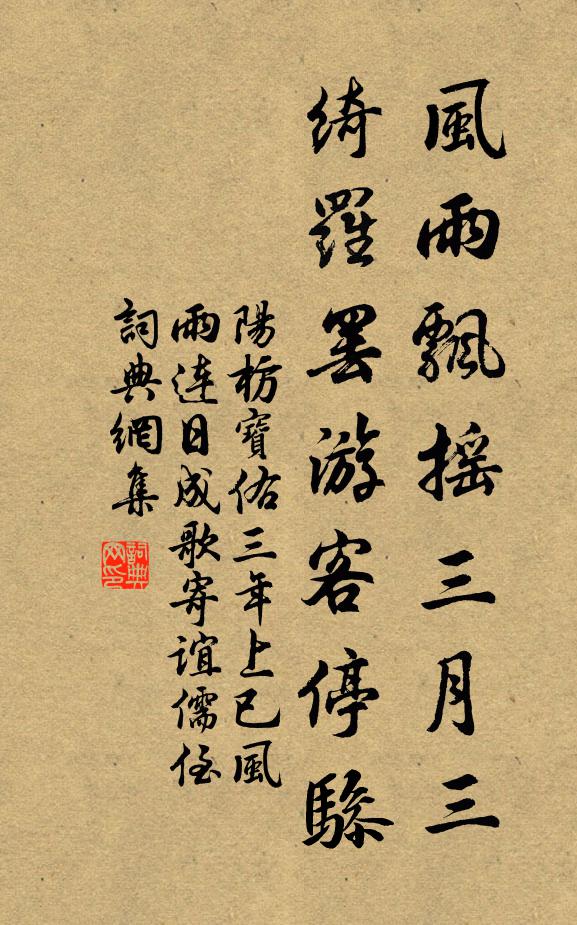 風雨飄摇三月三
綺羅罢游客停驂
陽枋寶佑三年上巳風
雨连日成歌寄谊儒侄
詞典網集
詞典
网印